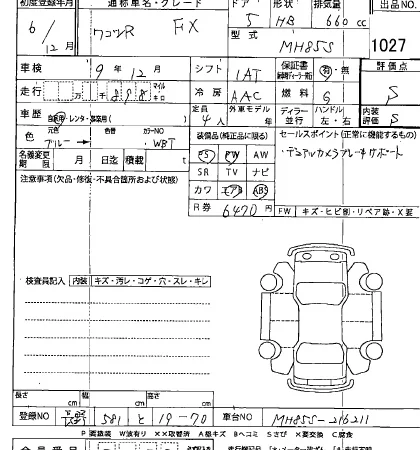 初度登録年月 通称車名・グレード ドア 形状 排気量 出品NO.
6/12月 ワゴンR FX 5 HB 660 cc
型式 MH85S 1027
車検 9年12月 シフト IAT 保証書 有・無 評価点
走行 万 千 マイル キロ 冷房 AAC 燃料 G S
車歴 自家用・レンタ・ 定員 4人 外車モデル年 ディーラー 並行 ハンドル 左・右 内装評価 S
色 元色 ブルー→ 色替 カラーNO WBT 装備品(純正品に限る) セールスポイント(正常に機能するもの)
名義変更期限 月 日迄 積載 t PS PW AW ・デュアルカメラブレーキサポート
注意事項(欠品・修復・不具合個所および状態) SR TV ナビ
カワ エアB ABS
R券 6470円 FW キズ・ヒビ割・リペア跡・X要
検査員記入 内装 キズ・汚レ・コゲ・穴・スレ・キレ
長さ cm 幅 cm 高さ cm
登録NO 581 と 19-70 車台NO MH85S-216211
P 要塗装 W波有り XX取替済 A線キズ Bヘコミ Sさび X要交換 C腐食
会員番号